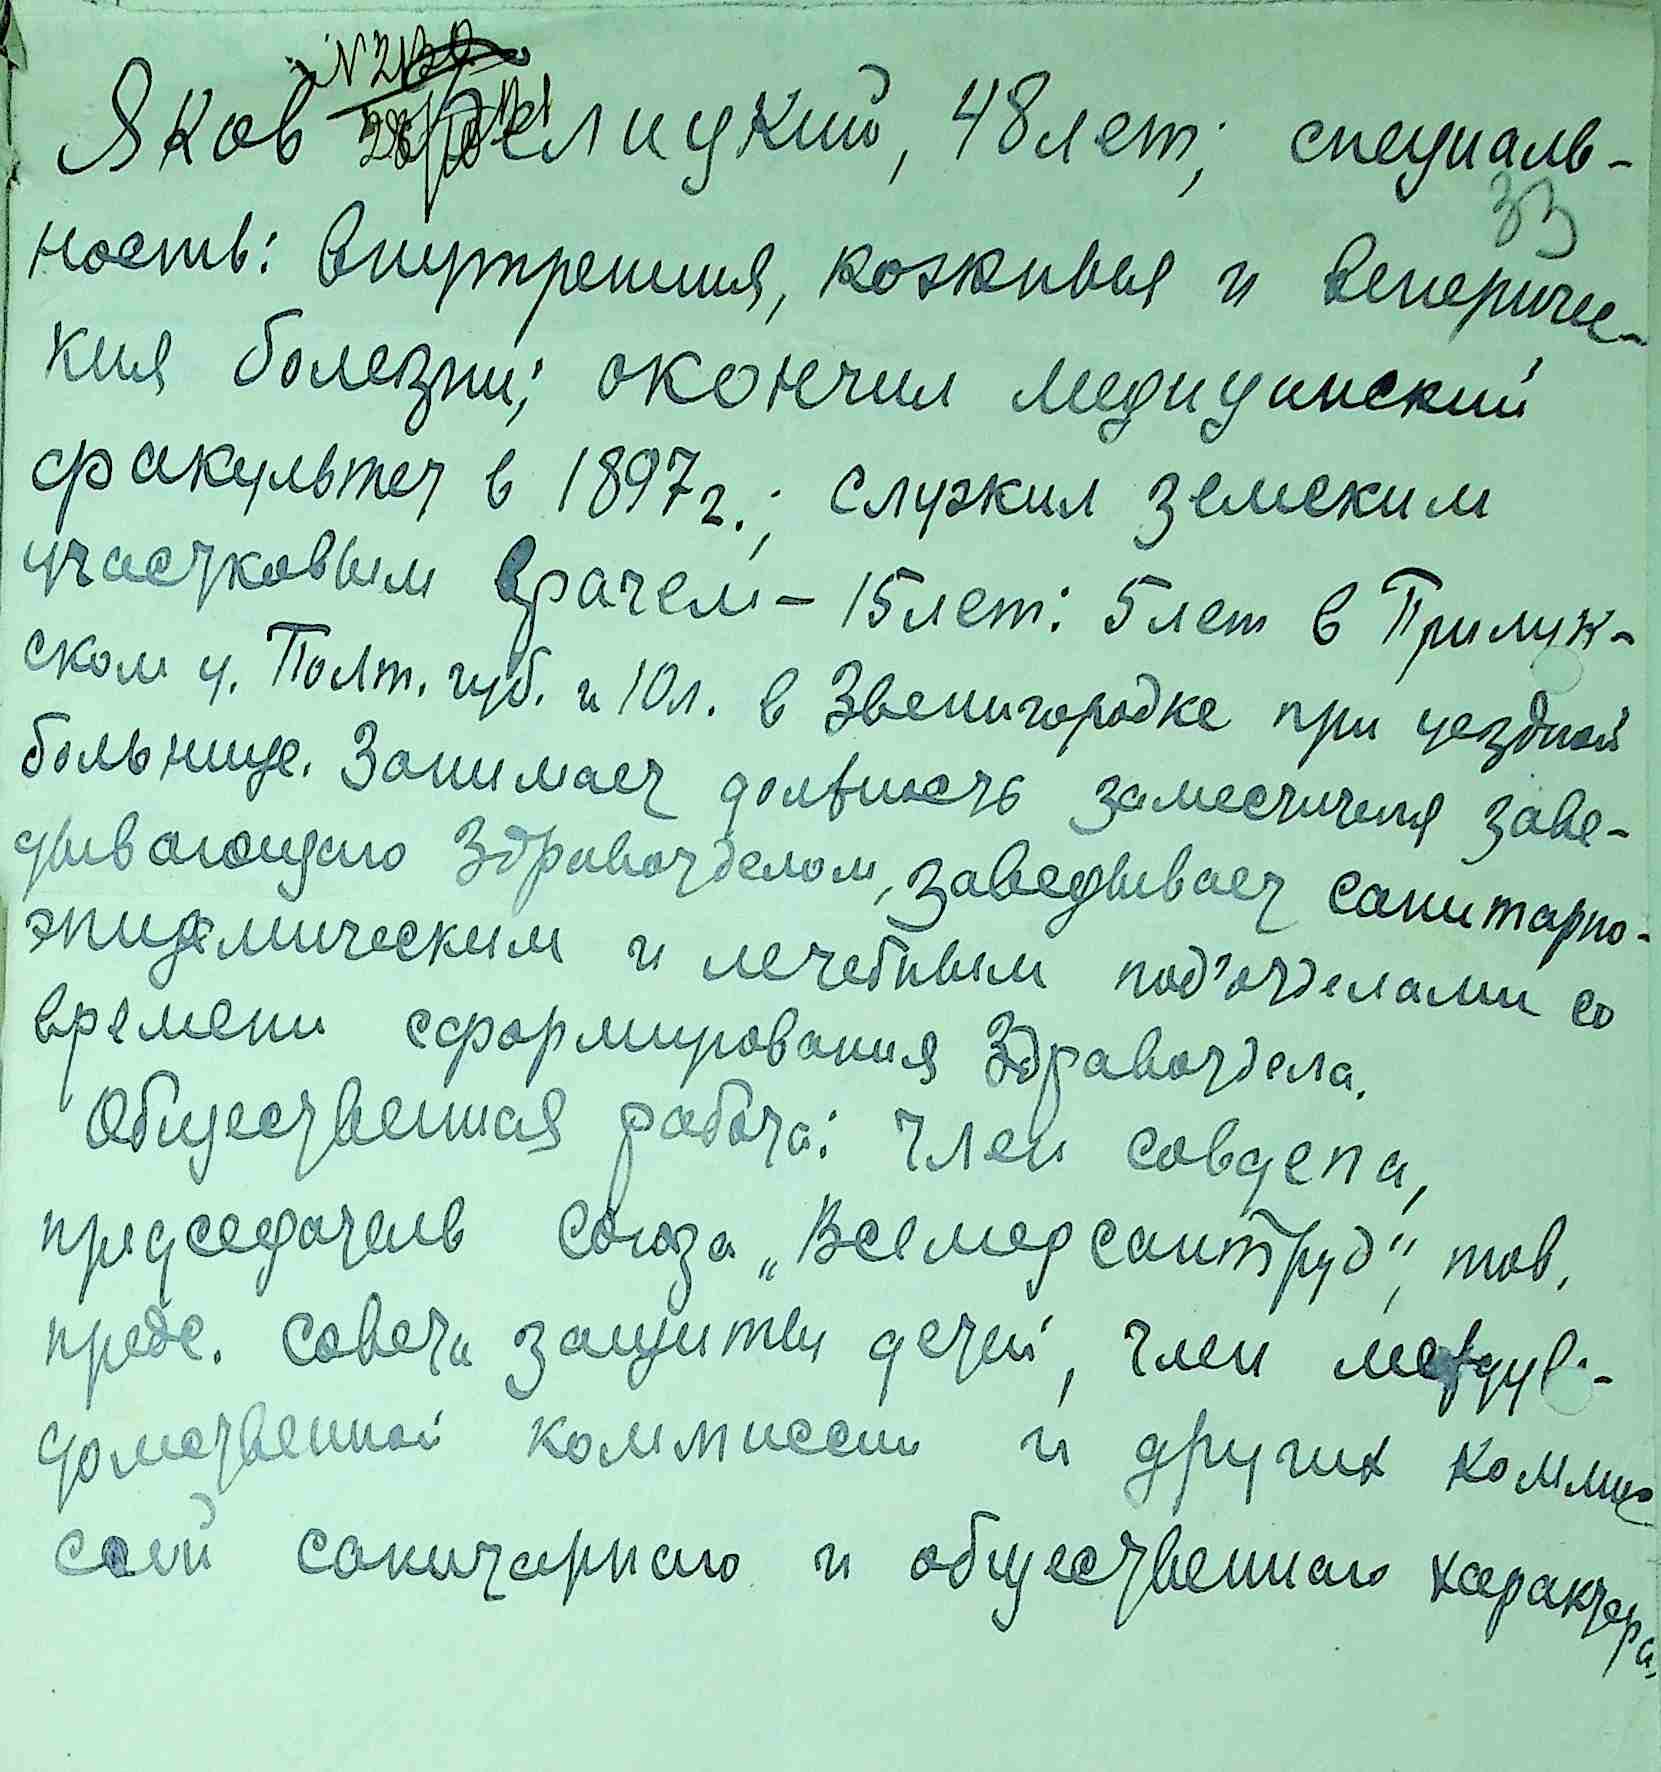 Яков елицкий, 48 лет; специаль-
33
ность: внутренния, кожныя и венериче-
кия болезни; окончил медицинский
факультет в 1897 г.; служил земским
участковым врачем – 15 лет: 5 лет в Прилук-
ском у. Полт. губ. и 10 л. в Звенигородке при уездной
больнице. Занимает должность заместителя заве-
дывающаго Здравотделом, заведывает санитарно-
эпидемическим и лечебным под'отделами со
времени сформирования Здравотдела.
Общественная работа: член совдепа,
председатель союза „Всемедсантруд", тов.
предс. совета защиты детей, член междуве-
домственной коммиссии и других коммис
сий санитарнаго и общественнаго характера.